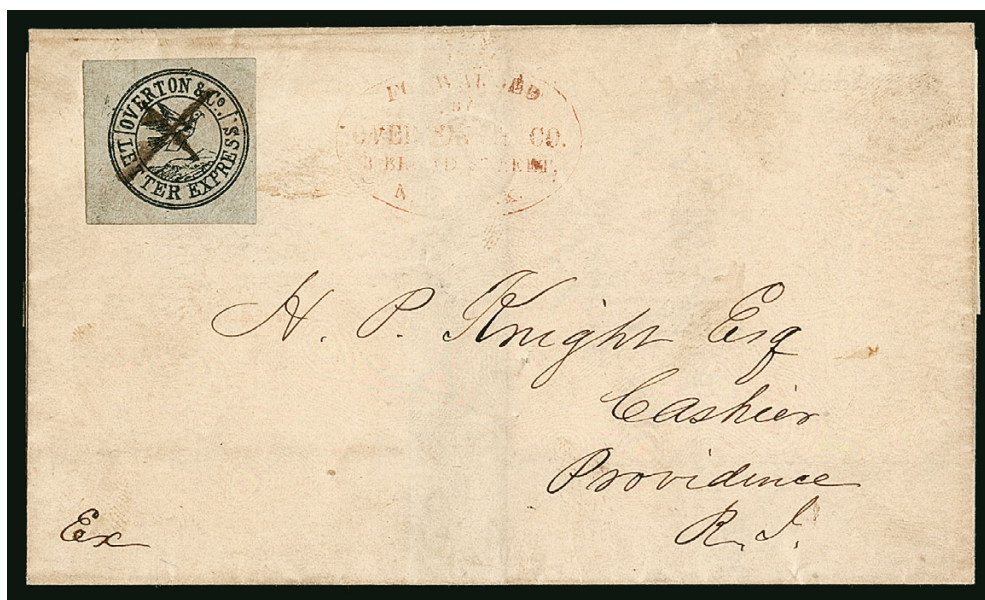 OVERTON & Co.
LETTER EXPRESS
OVER CO.
H. P. Knight Esq
Cashier
Providence
R. I.
Ex